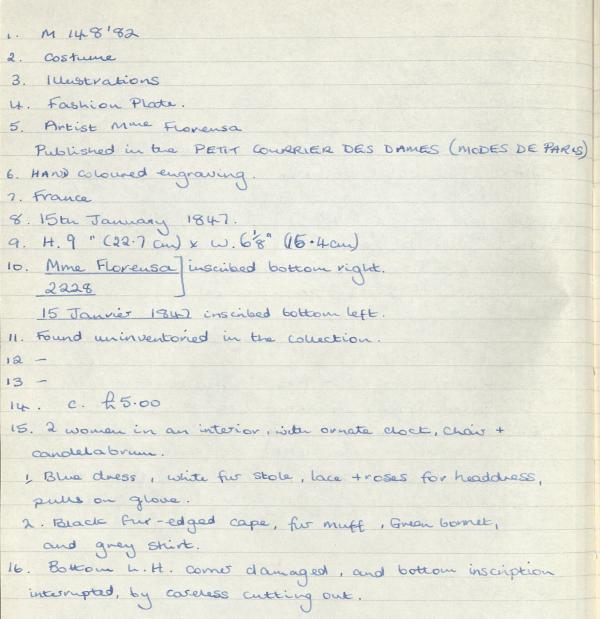 1. M 148'82
2. Costume
3. Illustrations
4. Fashion Plate.
5. Artist Mme Florensa
Published in the PETIT COURRIER DES DAMES (MODES DE PARIS)
6. HAND coloured engraving.
7. France
8. 15th January 1847.
9. H. 9" (22.7 cm) x W. 6⅛" (15.4cm)
10. Mme Florensa ] inscribed bottom right.
2228
15 Janvier 1847 inscribed bottom left.
11. Found uninventoried in the collection.
12 -
13 -
14. c. £5.00
15. 2 women in an interior, with ornate clock, chair +
candelabrum.
1. Blue dress, white fur stole, lace + roses for headdress,
pulls on glove.
2. Black fur-edged cape, fur muff, Green bonnet,
and grey skirt.
16. Bottom L.H. corner damaged, and bottom inscription
interrupted, by careless cutting out.